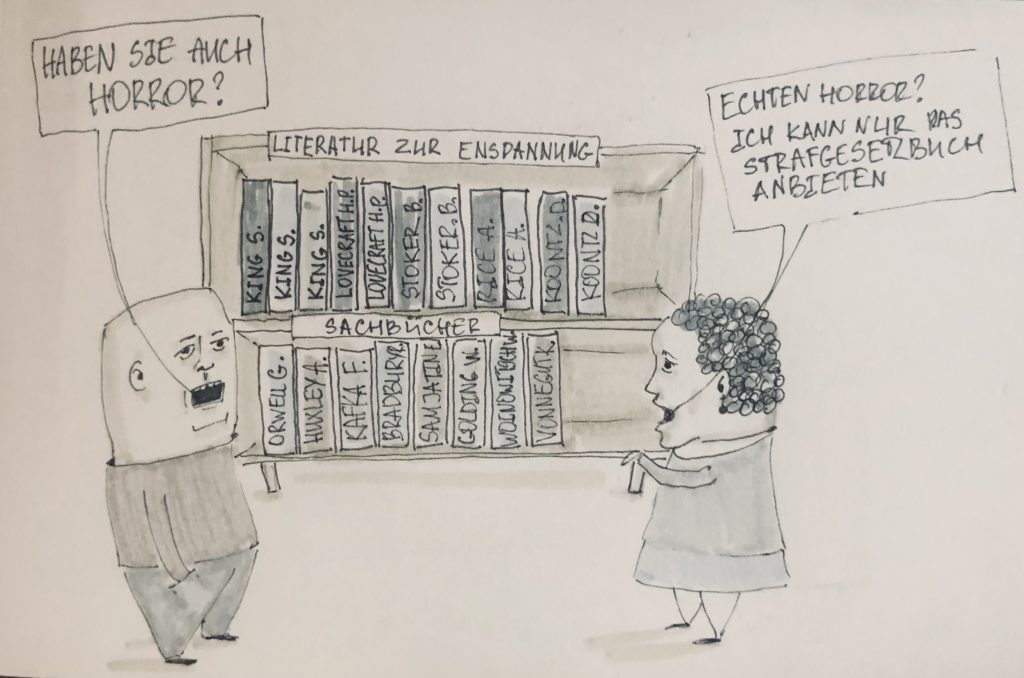 HABEN SIE AUCH
HORROR?
ECHTEN HORROR?
ICH KANN NUR DAS
STRAFGESETZBUCH
ANBIETEN
LITERATUR ZUR ENSPANNUNG
KING S.
KING S.
KING S.
LOVECRAFT H.P.
LOVECRAFT H.P.
STOKER B.
STOKER B.
RICE A.
RICE A.
KOONTZ D.
KOONTZ D.
SACHBÜCHER
ORWELL G.
HUXLEY A.
KAFKA F.
BRADBURY R.
SAMJATIN E.
GOLDING W.
WOINOWITSCH W.
VONNEGUT K.